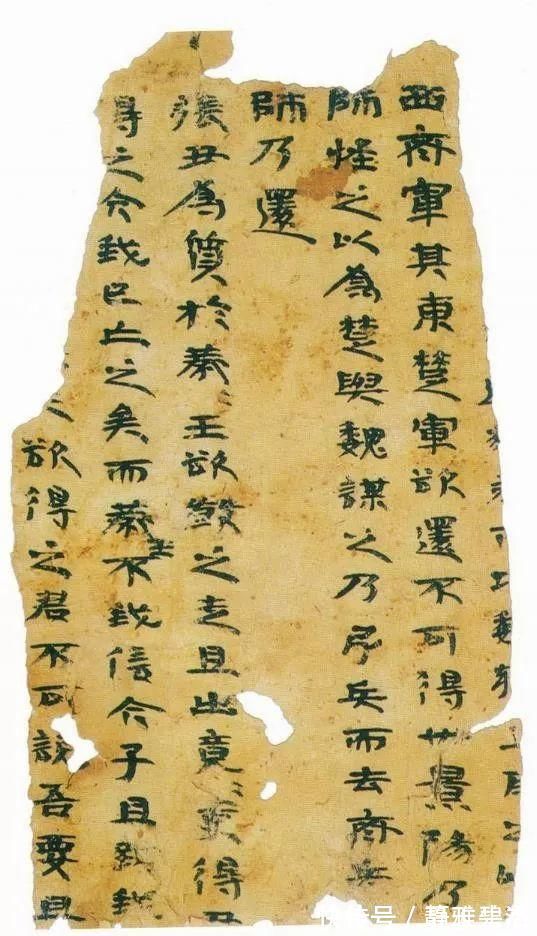 西齊軍其東楚軍欲還不可得也景陽乃
師怪之以為楚與魏謀之乃引兵而去齊兵
師乃還
張丑為質於燕〻王欲殺之走且出竟〻吏得丑
得之今我已亡之矣而燕王不我信今子且致我
欲得之君不可說吾要且